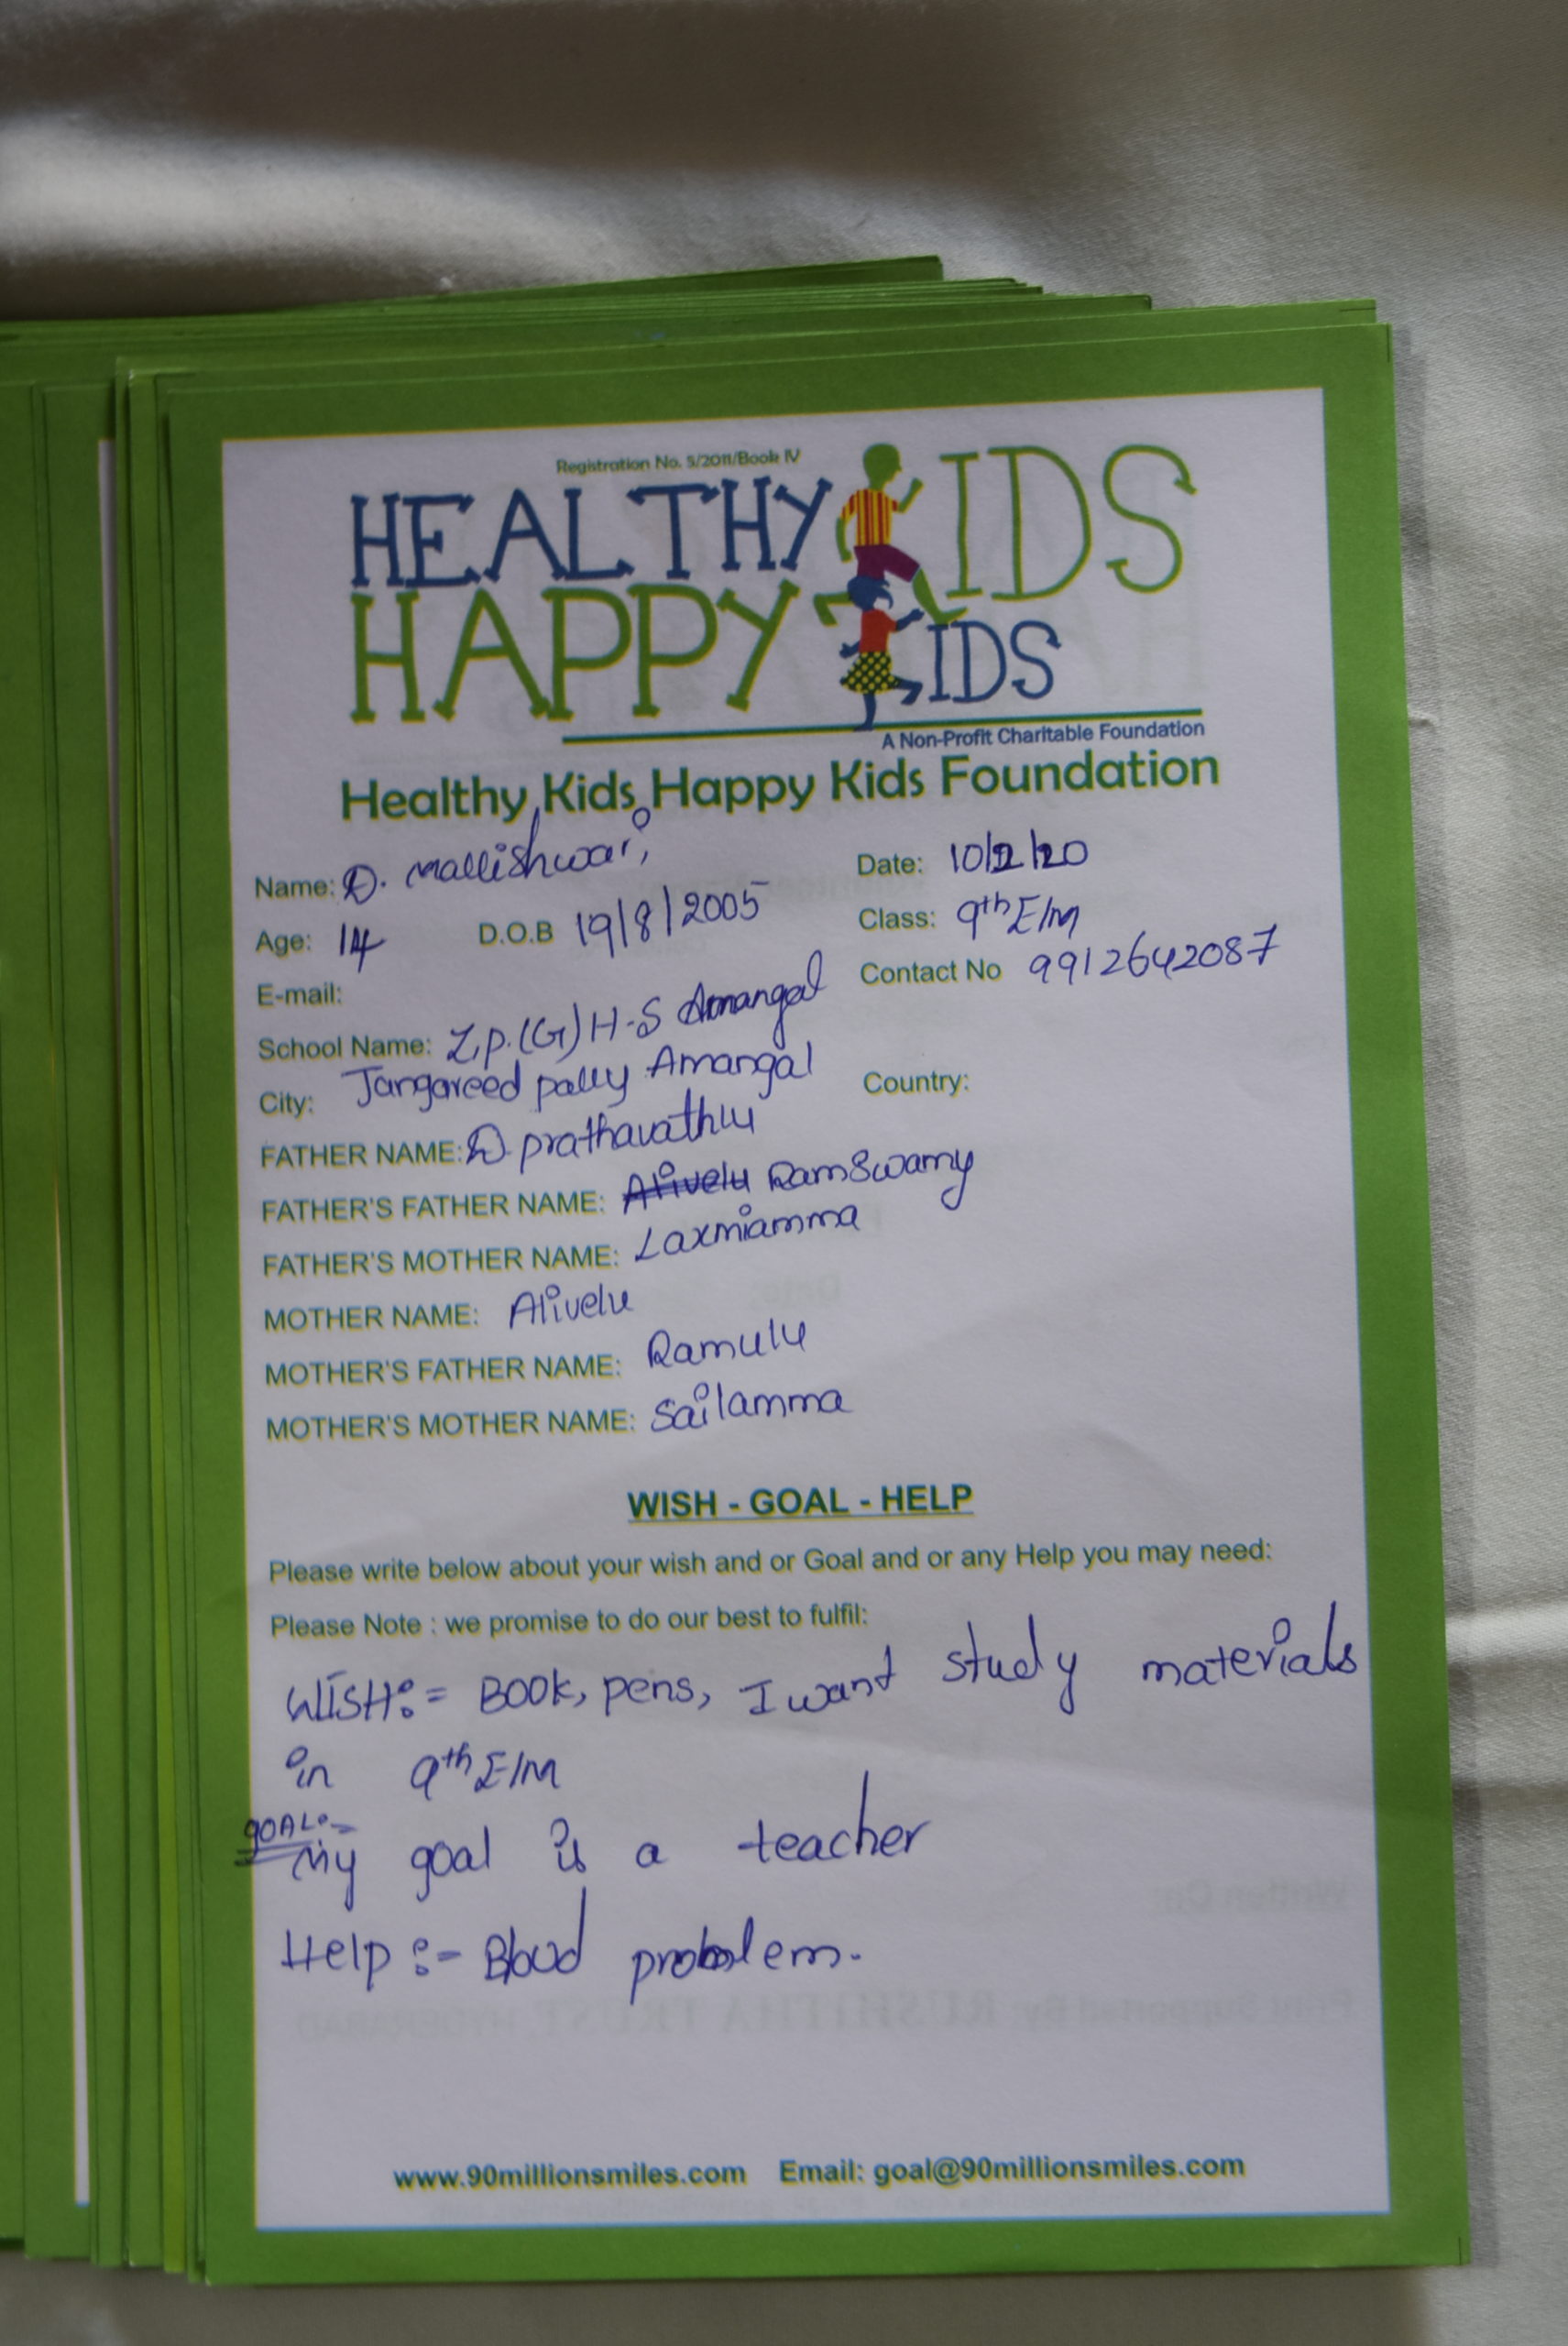 Registration No. 5/2011/Book IV
HEALTHY KIDS
HAPPY KIDS
A Non-Profit Charitable Foundation
Healthy Kids Happy Kids Foundation
Name: D. Mallishwari, Date: 10/2/20
Age: 14 D.O.B 19/8/2005 Class: 9th E/M
E-mail: Contact No 9912642087
School Name: Z.p.(G) H-S Amangal
City: Jangareed pally Amangal Country:
FATHER NAME: D. prathavathlu
FATHER'S FATHER NAME: Alivelu RamSwamy
FATHER'S MOTHER NAME: Laxmiamma
MOTHER NAME: Alivelu
MOTHER'S FATHER NAME: Ramulu
MOTHER'S MOTHER NAME: Sailamma
WISH - GOAL - HELP
Please write below about your wish and or Goal and or any Help you may need:
Please Note : we promise to do our best to fulfil:
WISH:= BOOK, pens, I want study materials
in 9th E/M
GOAL:-
My goal is a teacher
Help :- Blood problem.
www.90millionsmiles.com Email: goal@90millionsmiles.com